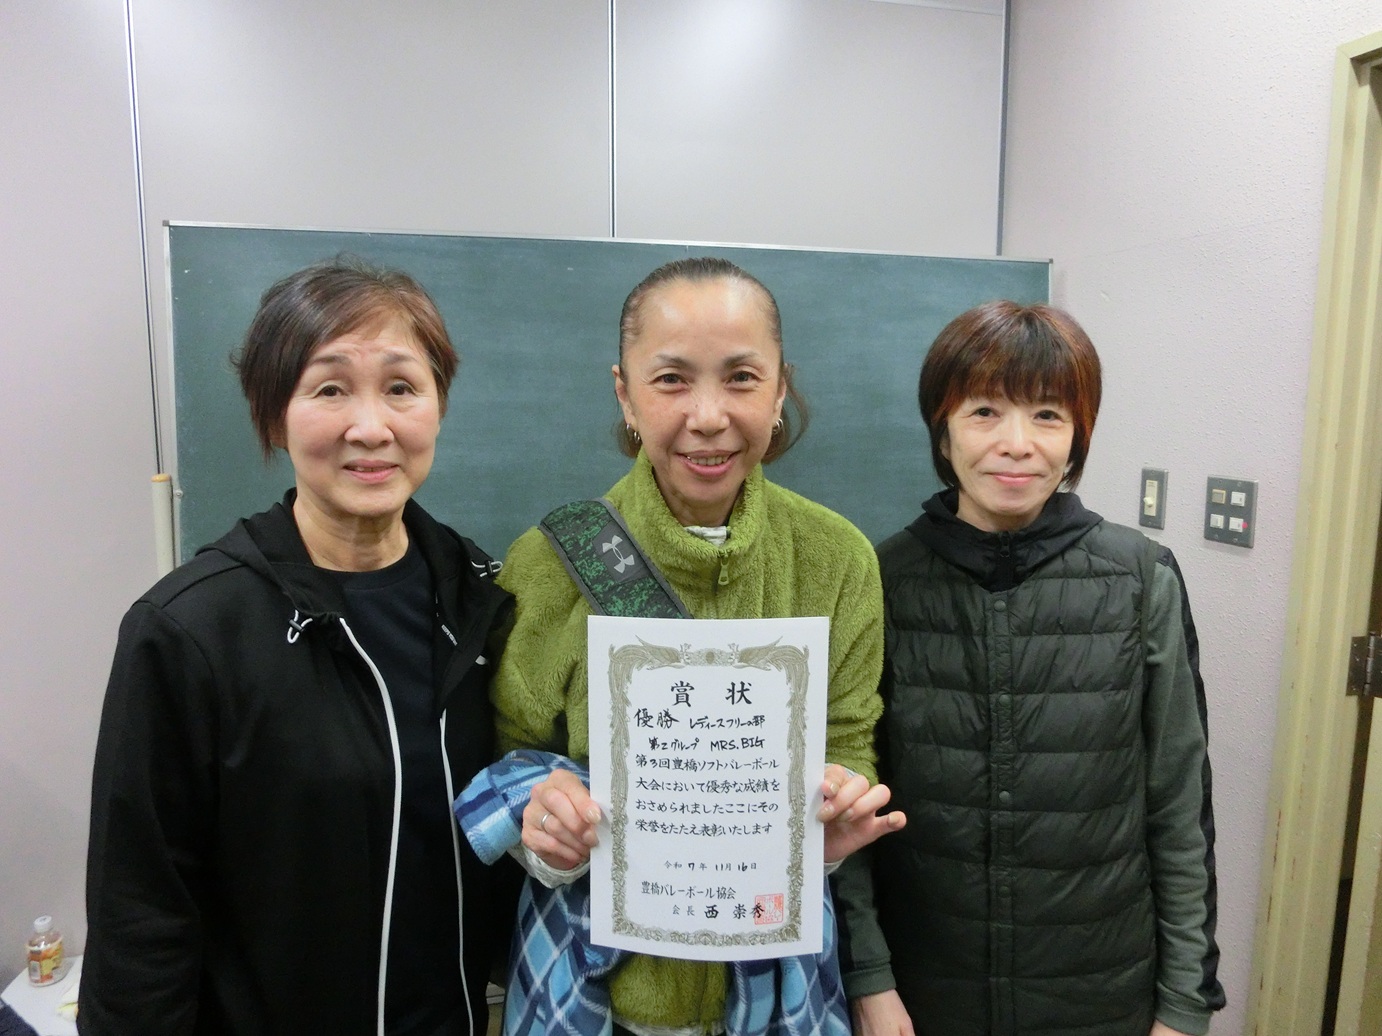 賞状
優勝 レディースフリーの部
第2グループ MRS.BIG
第3回豊橋ソフトバレーボール
大会において優秀な成績を
おさめられましたここにその
栄誉をたたえ表彰いたします
令和7年11月16日
豊橋バレーボール協会
会長 西 崇秀